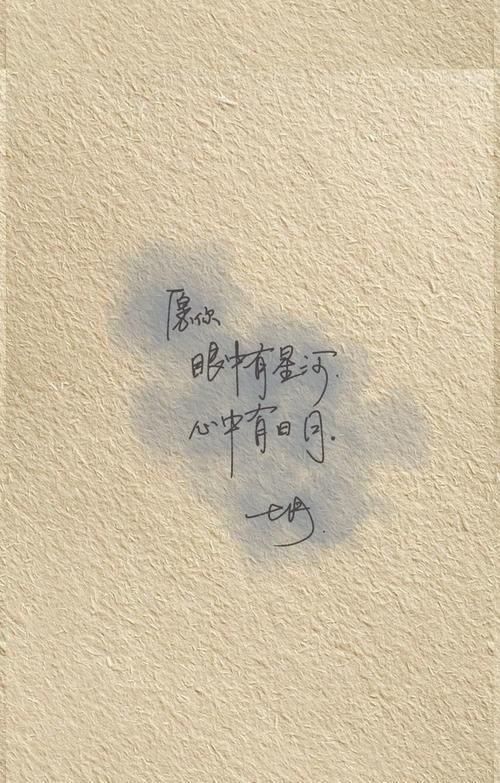 愿你
眼中有星河.
心中有日月.